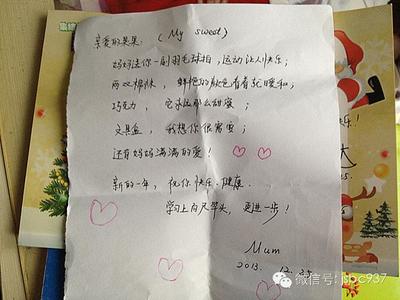 亲爱的果果：（My sweet）
妈妈送你一副羽毛球拍，运动让人快乐；
两双棉袜，鲜艳的颜色看着就暖和；
巧克力，它永远那么甜蜜；
文具盒，我想你很需要；
还有妈妈满满的爱！
新的一年，祝你快乐、健康。
学习上百尺竿头，更进一步！
Mum
2013. 12. 25.
微信号: jsbc937